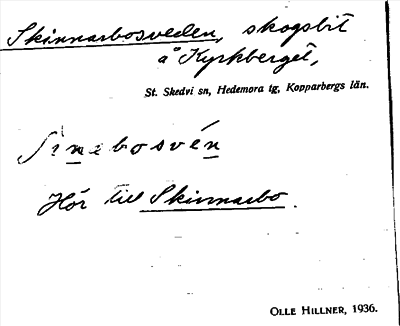 Skinnarbosveden, skogsbit
å Kyrkberget,
St. Skedvi sn, Hedemora tg, Kopparbergs län.
Sinebosvén
Hör till Skinnarbo.
OLLE HILLNER, 1936.